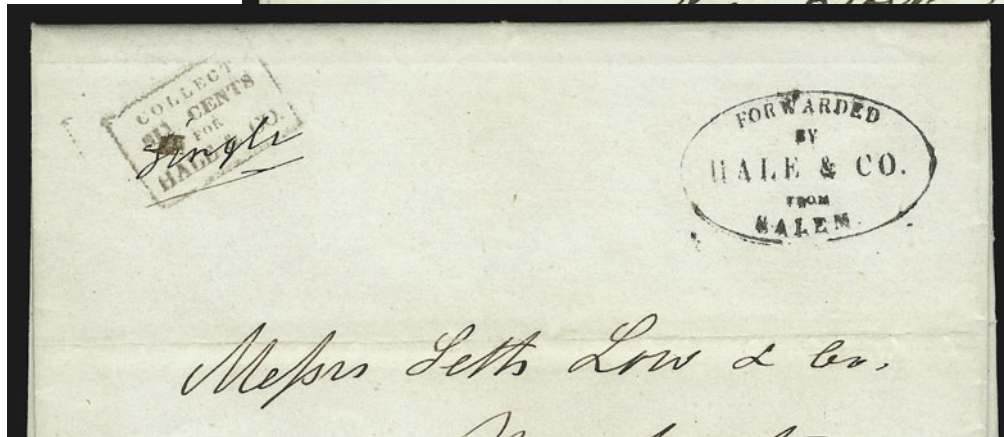 COLLECT
SIX CENTS
FOR
HALE & CO.
Single
FORWARDED
BY
HALE & CO.
FROM
SALEM.
Messrs Seth Low & Co.